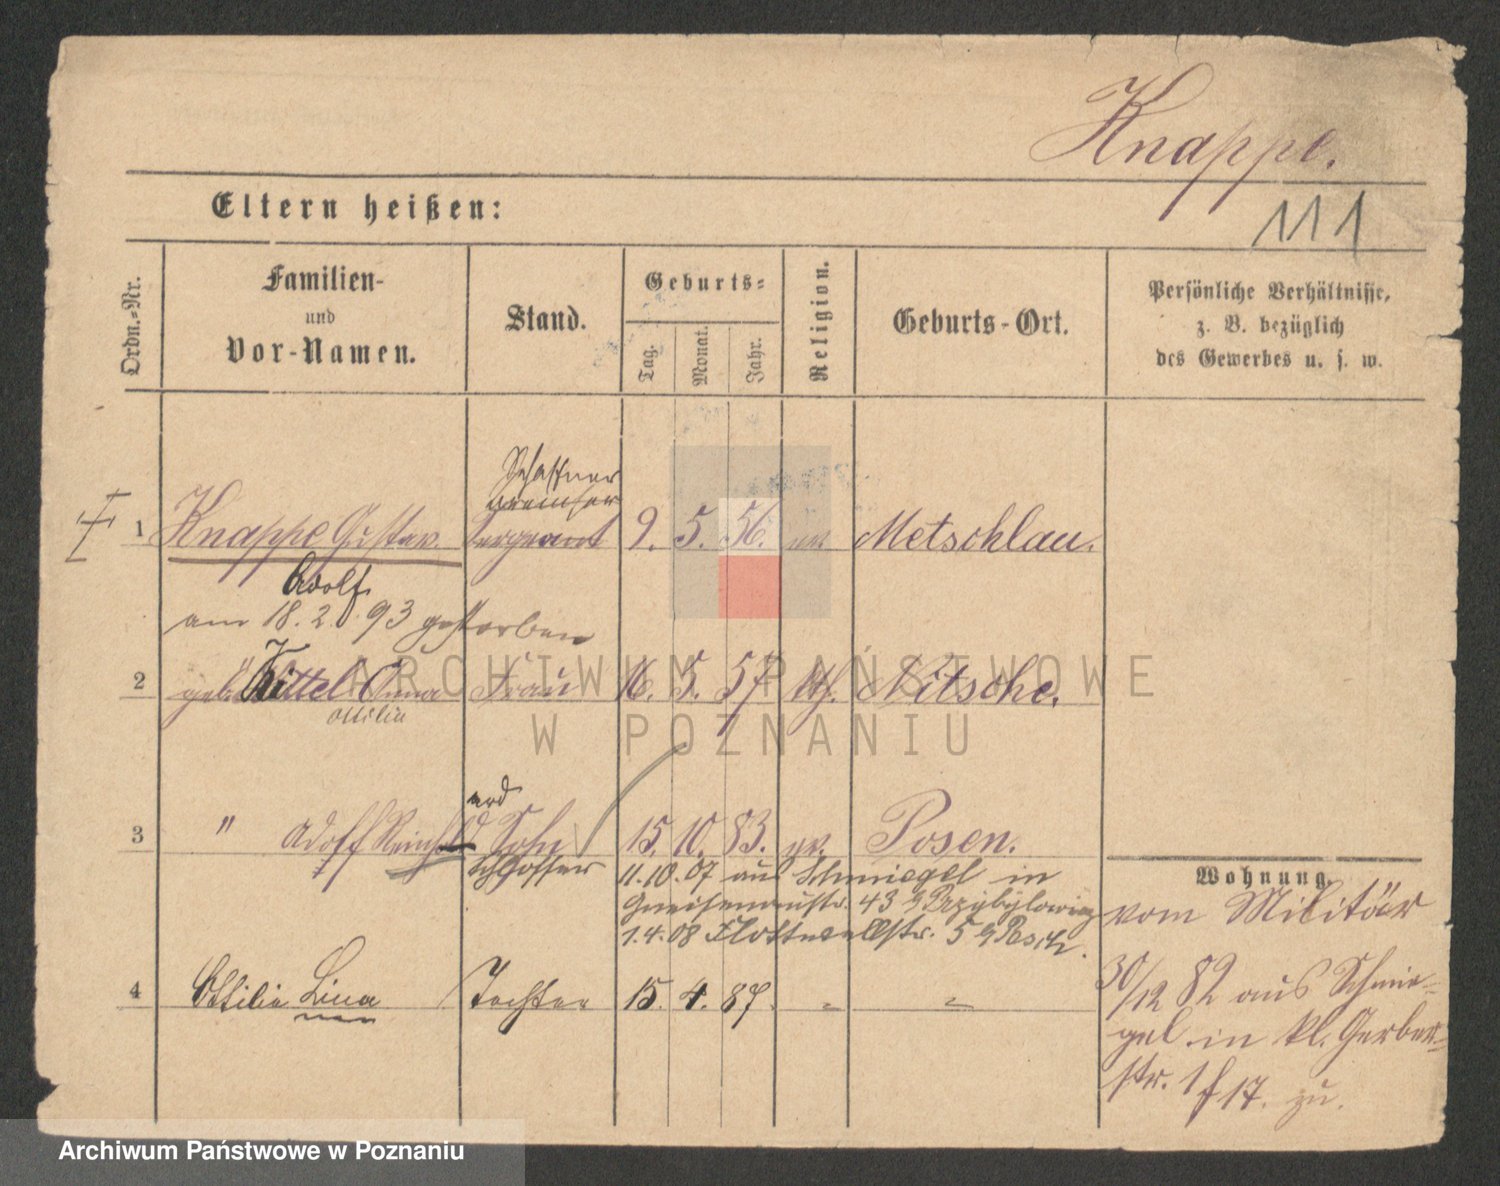 Knappe.
Eltern heißen:
111
Ordn.-Nr.
Familien-
und
Vor-Namen.
Stand.
Geburts-
Tag.
Monat.
Jahr.
Religion.
Geburts-Ort.
Persönliche Verhältnisse,
z. B. bezüglich
des Gewerbes u. s. w.
Schaffner
Bremser
1 Knappe Gustav Sergeant 9. 5. 56. ev. Metschlau.
Adolf
am 18. 2. 93 gestorben
2 geb. Kittel Anna Frau 16. 5. 57 kth. Nitsche.
Ottilie
ARCHIWUM PAŃSTWOWE
W POZNANIU
ard
3 " Adolf Sohn 15. 10. 83. ev. Posen.
Schlosser 11. 10. 07 aus Schmiegel in
Gneisenaustr. 43 b Przybylowicz
1. 4. 08 Flottwellstr. 5 b
Wohnung
4 Ottilie Lina Tochter 15. 4. 87. " "
vom Militär
30/12 82 aus Schmie-
gel in kl. Gerber-
str. 17. zu.
Archiwum Państwowe w Poznaniu